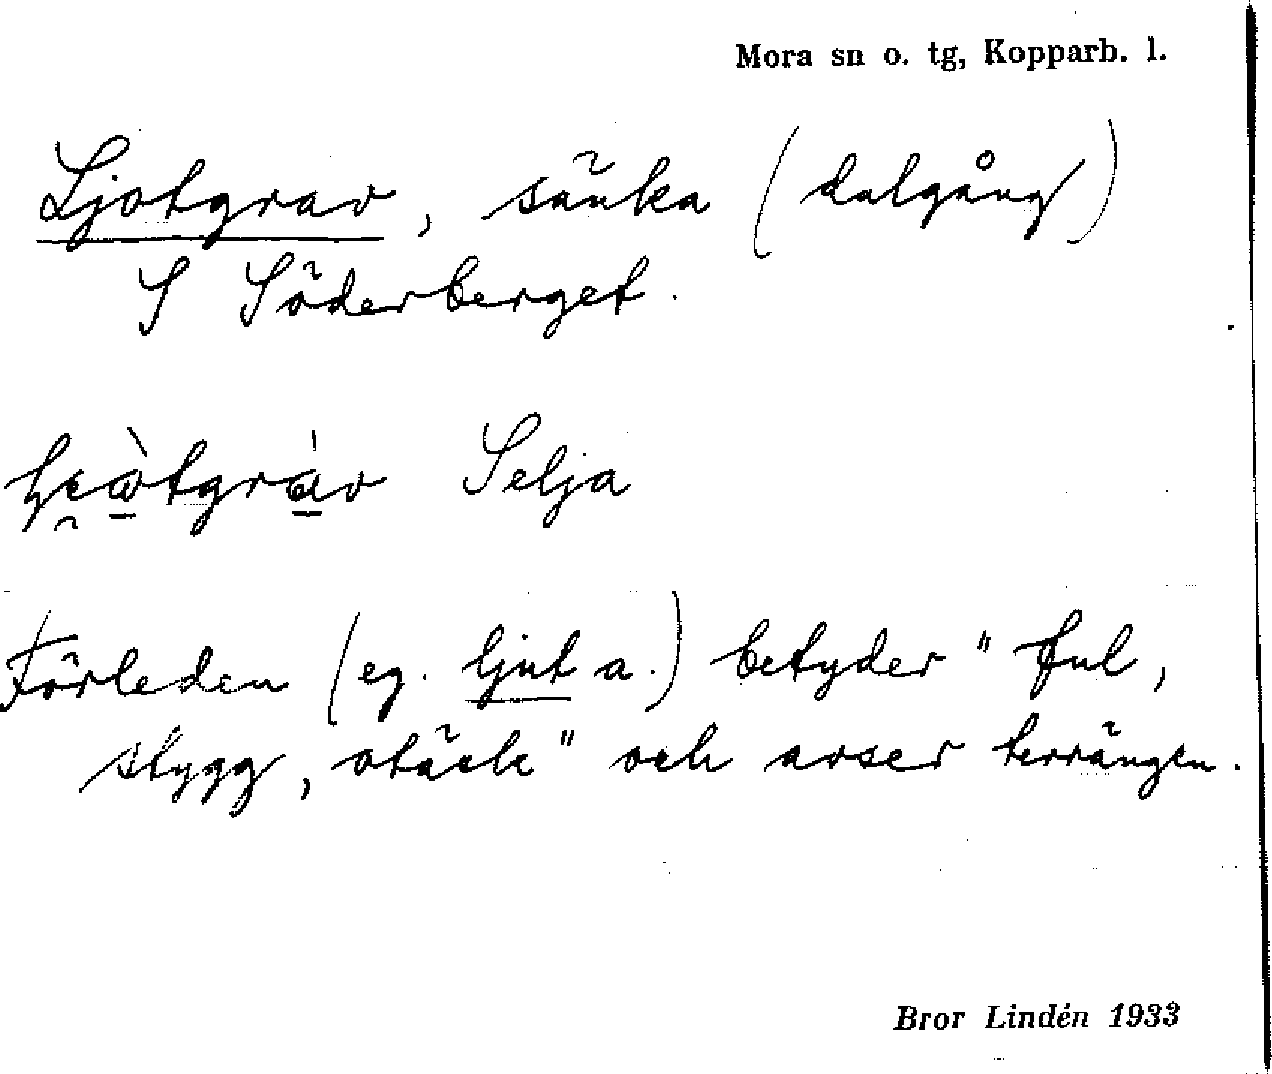 Mora sn o. tg, Kopparb. l.
Ljotgrav, sänka (dalgång)
S Söderberget.
Selja
Förleden (eg. ljut a.) betyder "ful,
stygg, otäck" och avser terrängen.
Bror Lindén 1933